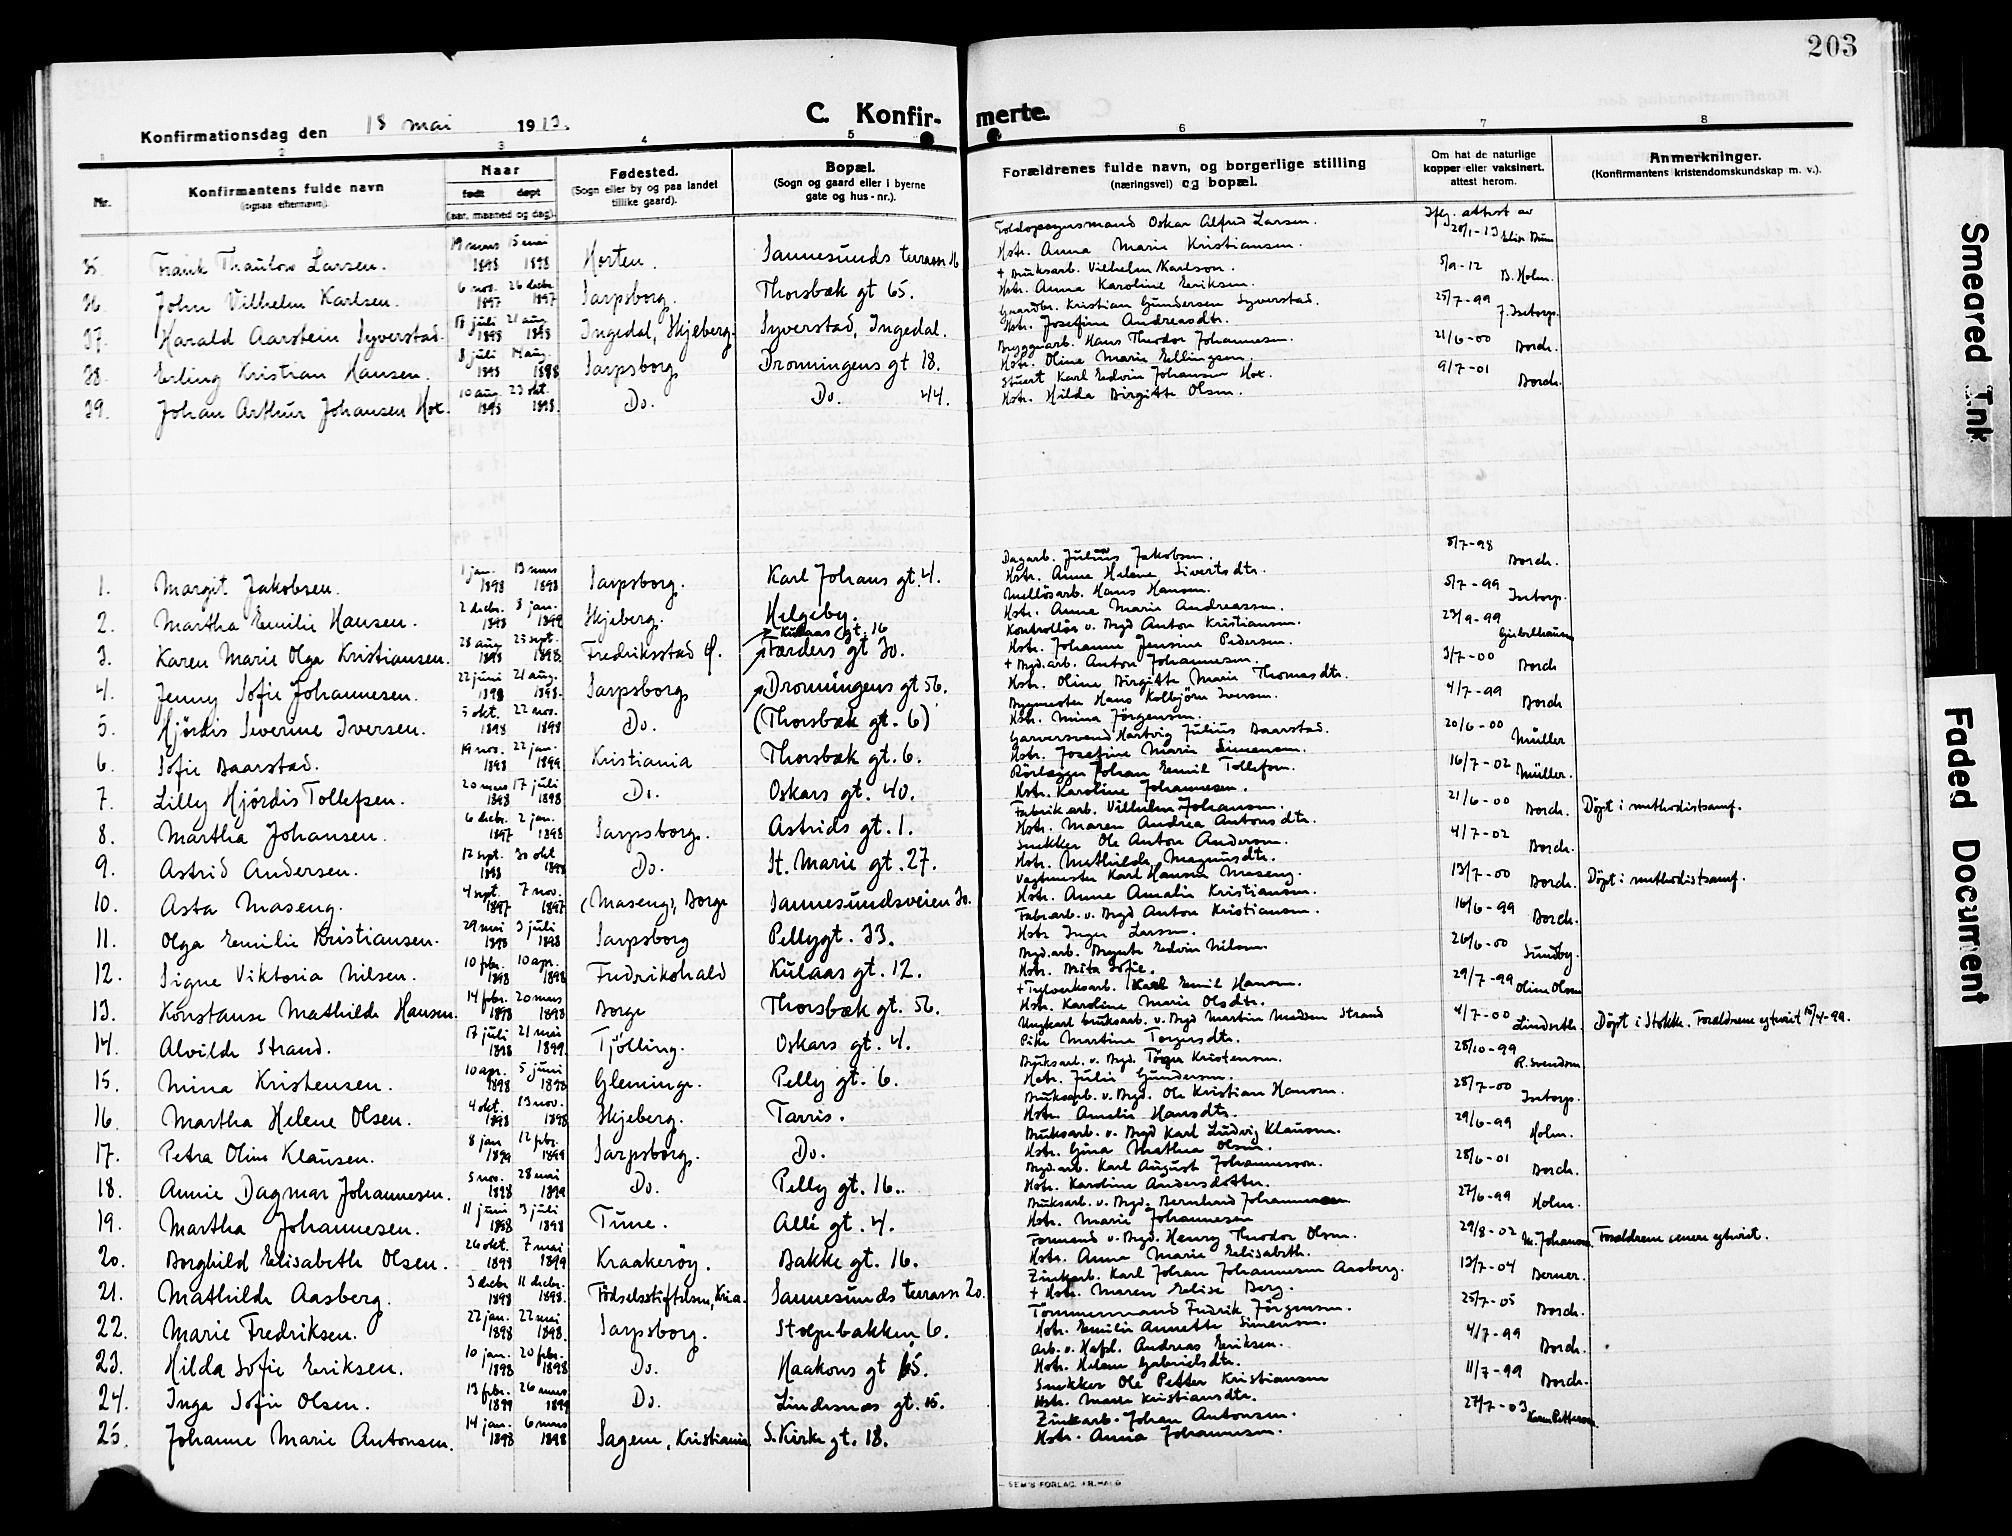 203
Konfirmationsdag den 18 mai 1913.
C. Konfirmerte.
1 2 3 4 5 6 7 8
Nr.
Konfirmantens fulde navn
(ogsaa efternavn).
Naar
født døpt
(aar, maaned og dag).
Fødested.
(Sogn eller by og paa landet
tillike gaard).
Bopæl.
(Sogn og gaard eller i byerne
gate og hus-nr.).
Forældrenes fulde navn, og borgerlige stilling
(næringsvei) og bopæl.
Om hat de naturlige
kopper eller vaksinert.
attest herom.
Anmerkninger.
(Konfirmantens kristendomskundskap m. v.).
35. Frank Thaulow Larsen. 19 mars 1898 15 mai 1898 Horten. Sannesunds terasse 16 Toldopsynsmand Oskar Alfred Larsen. Hstr. Anna Marie Kristiansen. Iflg. attest av 28/1-13
36. John Vilhelm Karlsen. 6 nov. 1897 26 decbr. 1897 Sarpsborg. Thorsbæk gt 65. + Bruksarb. Vilhelm Karlson. Hstr. Anna Karoline Eriksen. 5/9-12 B. Holm.
37. Harald Aarstein Syverstad. 18 juli 1898 21 aug. 1898 Ingedal, Skjeberg. Syverstad, Ingedal. Gaardbr. Kristian Gundersen Syverstad. Hstr. Josefine Andreasdtr. 25/7-99 J. Intorp.
38. Erling Kristian Hansen. 8 juli 1898 14 aug. 1898 Sarpsborg Dronningens gt 18. Bryggearb. Hans Theodor Johannesen. Hstr. Oline Marie Ellingsen. 21/6-00 Borch.
39. Johan Arthur Johansen Hox. 10 aug. 1898 23 okt. 1898. Do. Do. 44. Stuert Karl Edvin Johansen Hox. Hstr. Hilda Birgitte Olsen. 9/7-01 Borch.
1. Margit Jakobsen. 1 jan. 1898 13 mars 1898 Sarpsborg. Karl Johans gt. 4. Dagarb. Julius Jakobsen. Hstr. Anne Helene Sivertsdtr. 8/7-98 Borch.
2. Martha Emilie Hansen. 2 decbr. 1898 8 jan. 1899 Skjeberg. Helgeby. Hans Hansen. Hstr. Anna Marie Andreassen. 5/7-99 Intorp.
3. Karen Marie Olga Kristiansen. 28 aug 1898 25 sept. 1898. Fredriksstad Ø. Kulaas gt. 16 Færders gt 30. Kontrollør v. Bryd Anton Kristiansen. Hstr. Johanne Jensine Pedersen. 23/9-99
4. Jenny Sofie Johannesen. 22 juni 1898 21 aug. 1898. Sarpsborg Dronningens gt 56. + Bryd.arb. Anton Johannesen. Hstr. Oline Birgitte Marie Thomasdtr. 3/7-00 Borch
5. Hjördis Severine Iversen. 5 okt. 1898 22 nov. 1898 Do. (Thorsbæk gt. 6) Bygmester Hans Kolbjörn Iversen. Hstr. Mina Jörgensen. 4/7-99 Borch
6. Sofie Baarstad. 19 nov. 1898 22 jan. 1899 Kristiania Thorsbæk gt. 6. Garversvend Hartvig Julius Baarstad. Hstr. Josefine Marie Simensen. 20/6-00 Müller
7. Lilly Hjördis Tollefsen. 20 mars 1898 17 juli 1898 Do. Oskars gt. 40. Rörlægger Johan Emil Tollefsen. Hstr. Karoline Johannesen. 16/7-02 Müller.
8. Martha Johansen. 6 decbr. 1897 2 jan. 1898 Sarpsborg. Astrids gt. 1. Fabrikarb. Vilhelm Johansen. Hstr. Maren Andrea Antonsdtr. 21/6-00 Borch. Döpt i methodistsamf.
9. Astrid Andersen. 12 sept. 1898 30 okt 1898 Do. St. Marie gt. 27. Snekker Ole Anton Andersen. Hstr. Mathilde Magnusdtr. 4/7-02 Borch.
10. Asta Maseng. 4 sept. 1897 7 nov. 1897 (Maseng), Borge Sannesundsveien 30. Vagtmester Karl Hansen Maseng. Hstr. Anne Amalie Kristiansen. 13/7-00 Borch. Döpt i methodistsamf.
11. Olga Emilie Kristiansen. 29 mai 1898 3 juli 1898 Sarpsborg Pellygt. 33. Fabr.arb. v. Bryd Anton Kristiansen. Hstr. Inger Larsen. 16/6-99 Borch.
12. Signe Viktoria Nilsen. 10 febr. 1898 10 apr. 1898 Fredrikshald Kulaas gt. 12. Bryd.arb. Edvin Nilsen. Hstr. Brita Sofie. 26/6-00 Sundby.
13. Konstanse Mathilde Hansen. 14 febr. 1898 20 mars 1898 Borge Thorsbæk gt. 56. Karl Emil Hansen. Hstr. Karoline Marie Olsdtr. 29/7-99 Oline Olsen
14. Alvilde Strand. 17 juli 1898 21 mai 1899. Tjölling. Oskars gt. 4. Ungkarl bruksarb. v. Bryd Martin Madsen Strand Pike Martine Torgersdtr. 4/7-00 Lindseth. Döpt i Stokke. Forældrene egteviet 16/4-99.
15. Mina Kristensen. 10 apr. 1898 5 juni 1898 Glemminge. Pelly gt. 6. Bruksarb. v. Bryd. Torger Kristensen. Hstr. Julie Gundersen. 28/10-99 R. Svendsen
16. Martha Helene Olsen. 4 okt. 1898 13 nov. 1898 Skjeberg. Tarris. Bruksarb. v. Bryd. Ole Kristian Hansen. Hstr. Amalie Hansdtr. 28/7-00 Intorp.
17. Petra Oline Klausen. 8 jan 1899 12 febr. 1899 Sarpsborg. Do. Bruksarb. v. Bryd Karl Ludvig Klausen. Hstr. Gina Mathea Olsen. 29/6-99 Holm.
18. Annie Dagmar Johannesen. 5 nov. 1898 28 mai 1899 Do. Pelly gt. 16. Bryd.arb. Karl August Johannesson. Hstr. Karoline Andersdotter. 28/6-01 Borch.
19. Martha Johannesen. 11 juni 1898 3 juli 1898 Tune. Allé gt. 4. Bruksarb. v. Bryd. Bernhard Johannesen Hstr. Marie Johannesen 27/6-99 Holm.
20. Borghild Elisabeth Olsen. 26 okt. 1898 7 mai 1899 Kraakerøy. Bakke gt. 16. Formand v. Bryd. Henry Theodor Olsen. Hstr. Anna Marie Elisabeth. 29/8-02 M. Johansen. Forældrene senere egteviet.
21. Mathilde Aasberg. 3 decbr 1898 11 decbr. 1898. Födselsstiftelsen, Kria. Sannesunds terasse 20. Zinkarb. Karl Johan Johannesen Aasberg. + Hstr. Maren Elise Berg. 13/7-04 Berner.
22. Marie Fredriksen. 22 jan. 1898 22 mai 1898. Sarpsborg. Stolpebakken 6. Tömmermand Fredrik Jörgensen. Hstr. Emilie Annette Simensen. 25/7-05 Borch.
23. Hilda Sofie Eriksen. 10 jan. 1898 20 febr. 1898 Do. Haakons gt 65. Arb. v. Hafsl. Andreas Eriksen. Hstr. Helene Gabrielsdtr. 4/7-99 Borch.
24. Inga Sofie Olsen. 13 febr. 1899 26 mars 1899 Do. Lindesnæs gt. 15. Snekker Ole Petter Kristiansen Hstr. Marie Kristiansdtr. 11/7-99 Borch.
25. Johanne Marie Antonsen. 14 jan. 1898 6 mars 1898 Sagene, Kristiania S. Kirke gt. 18. Zinkarb. Johan Antonsen. Hstr. Anna Johannesen. 27/7-03 Karen Pettersen.
SEM'S FORLAG, FR.HALD
Smeared Ink
Faded Document